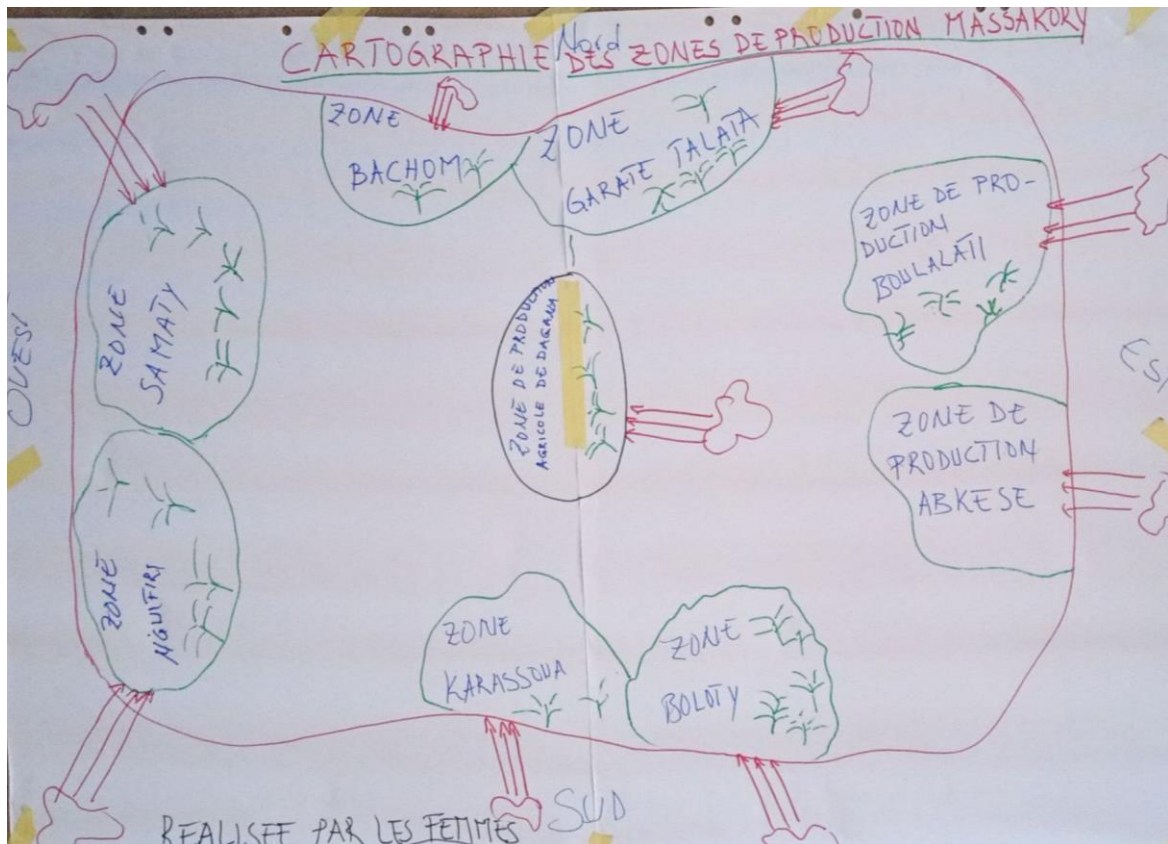 Nord
CARTOGRAPHIE DES ZONES DE PRODUCTION MASSAKORY
ZONE
BACHOM
ZONE
GARATE TALATA
ZONE DE PRO-
DUCTION
BOULALATI
ZONE
SAMATY
OUEST
ZONE DE PRODUCTION
AGRICOLE DE DAGANA
EST
ZONE DE
PRODUCTION
ABKESE
ZONE
NGUIFIRI
ZONE
KARASSOUA
ZONE
BOLOTY
SUD
REALISEE PAR LES FEMMES